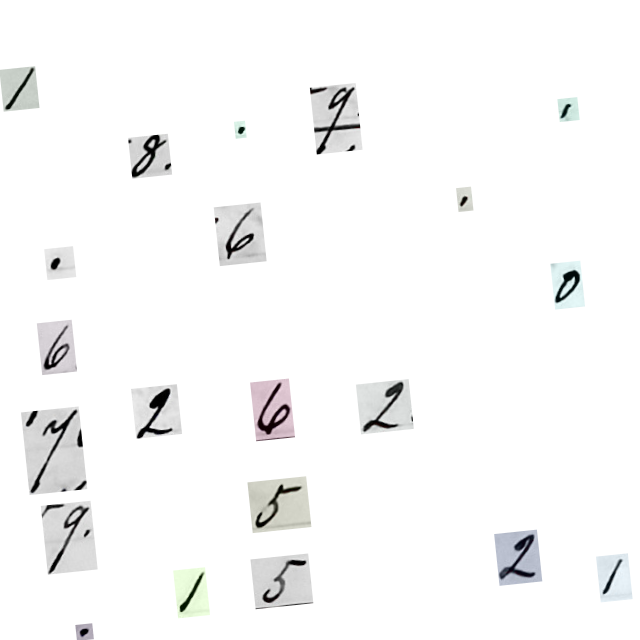 1 8. . 9 ,
. 6 , 0
6
7 2 6 2
9. 5
. 1 5 2 1